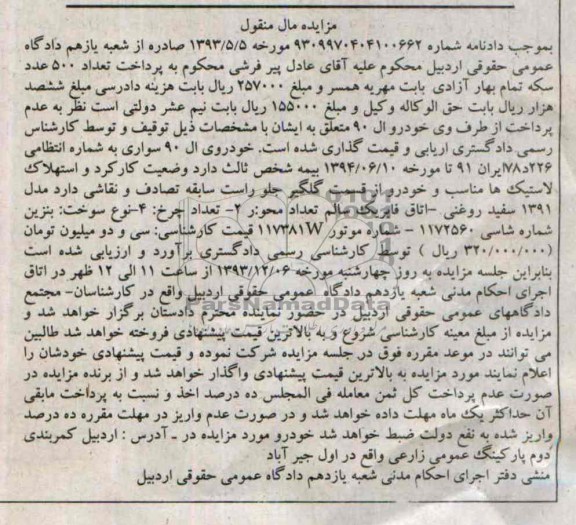 مزایده مال منقول
بموجب دادنامه شماره ۹۳۰۹۹۷۰۴۰۴۱۰۰۶۶۲ مورخه ۱۳۹۳/۵/۵ صادره از شعبه یازدهم دادگاه
عمومی حقوقی اردبیل محکوم علیه آقای عادل پیر فرشی محکوم به پرداخت تعداد ۵۰۰ عدد
سکه تمام بهار آزادی بابت مهریه همسر و مبلغ ۲۵۷۰۰۰ ریال بابت هزینه دادرسی مبلغ ششصد
هزار ریال بابت حق الوکاله وکیل و مبلغ ۱۵۵۰۰۰ ریال بابت نیم عشر دولتی است نظر به عدم
پرداخت از طرف وی خودرو ال ۹۰ متعلق به ایشان با مشخصات ذیل توقیف و توسط کارشناس
رسمی دادگستری اریابی و قیمت گذاری شده است. خودروی ال ۹۰ سواری به شماره انتظامی
۲۲۶د۷۸ایران ۹۱ تا مورخه ۱۳۹۴/۰۶/۱۰ بیمه شخص ثالث دارد وضعیت کارکرد و استهلاک
لاستیک ها مناسب و خودرو از قسمت گلگیر جلو راست سابقه تصادف و نقاشی دارد مدل
۱۳۹۱ سفید روغنی -اتاق فابریک سالم تعداد محور ۲- تعداد چرخ: ۴-نوع سوخت: بنزین
شماره شاسی ۱۱۷۲۵۶۰ - شماره موتور ۱۱۷۳۸۱W قیمت کارشناسی: سی و دو میلیون تومان
(۳۲۰/۰۰۰/۰۰۰ ریال ) توسط کارشناسی رسمی دادگستری برآورد و ارزیابی شده است
بنابراین جلسه مزایده به روز چهارشنبه مورخه ۱۳۹۳/۱۲/۰۶ از ساعت ۱۱ الی ۱۲ ظهر در اتاق
اجرای احکام مدنی شعبه یازدهم دادگاه عمومی حقوقی اردبیل واقع در کارشناسان- مجتمع
دادگاههای عمومی حقوقی اردبیل در حضور نماینده محترم دادستان برگزار خواهد شد و
ParsNamadData
مزایده از مبلغ معینه کارشناسی شروع و به بالاترین قیمت پیشنهادی فروخته خواهد شد طالبین
می توانند در موعد مقرره فوق در جلسه مزایده شرکت نموده و قیمت پیشنهادی خودشان را
اعلام نمایند مورد مزایده به بالاترین قیمت پیشنهادی واگذار خواهد شد و از برنده مزایده در
صورت عدم پرداخت کل ثمن معامله فی المجلس ده درصد اخذ و نسبت به پرداخت مابقی
آن حداکثر یک ماه مهلت داده خواهد شد و در صورت عدم واریز در مهلت مقرره ده درصد
واریز شده به نفع دولت ضبط خواهد شد خودرو مورد مزایده در ـ آدرس : اردبیل کمربندی
دوم پارکینگ عمومی زارعی واقع در اول جیر آباد
منشی دفتر اجرای احکام مدنی شعبه یازدهم دادگاه عمومی حقوقی اردبیل